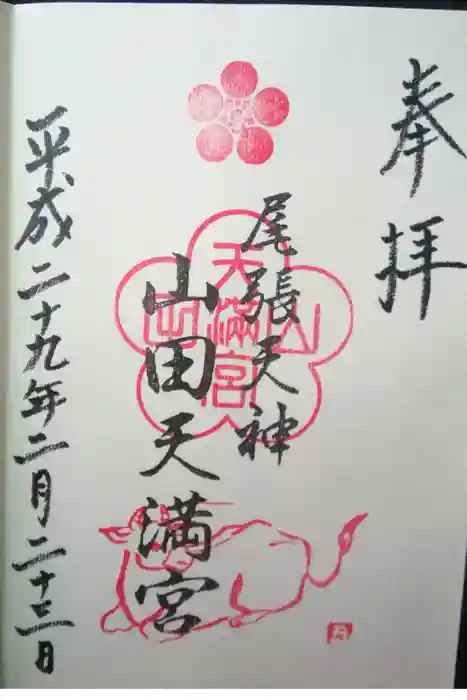 奉拝
尾張天神
山田天満宮
天満宮
山田
平成二十九年二月二十三日